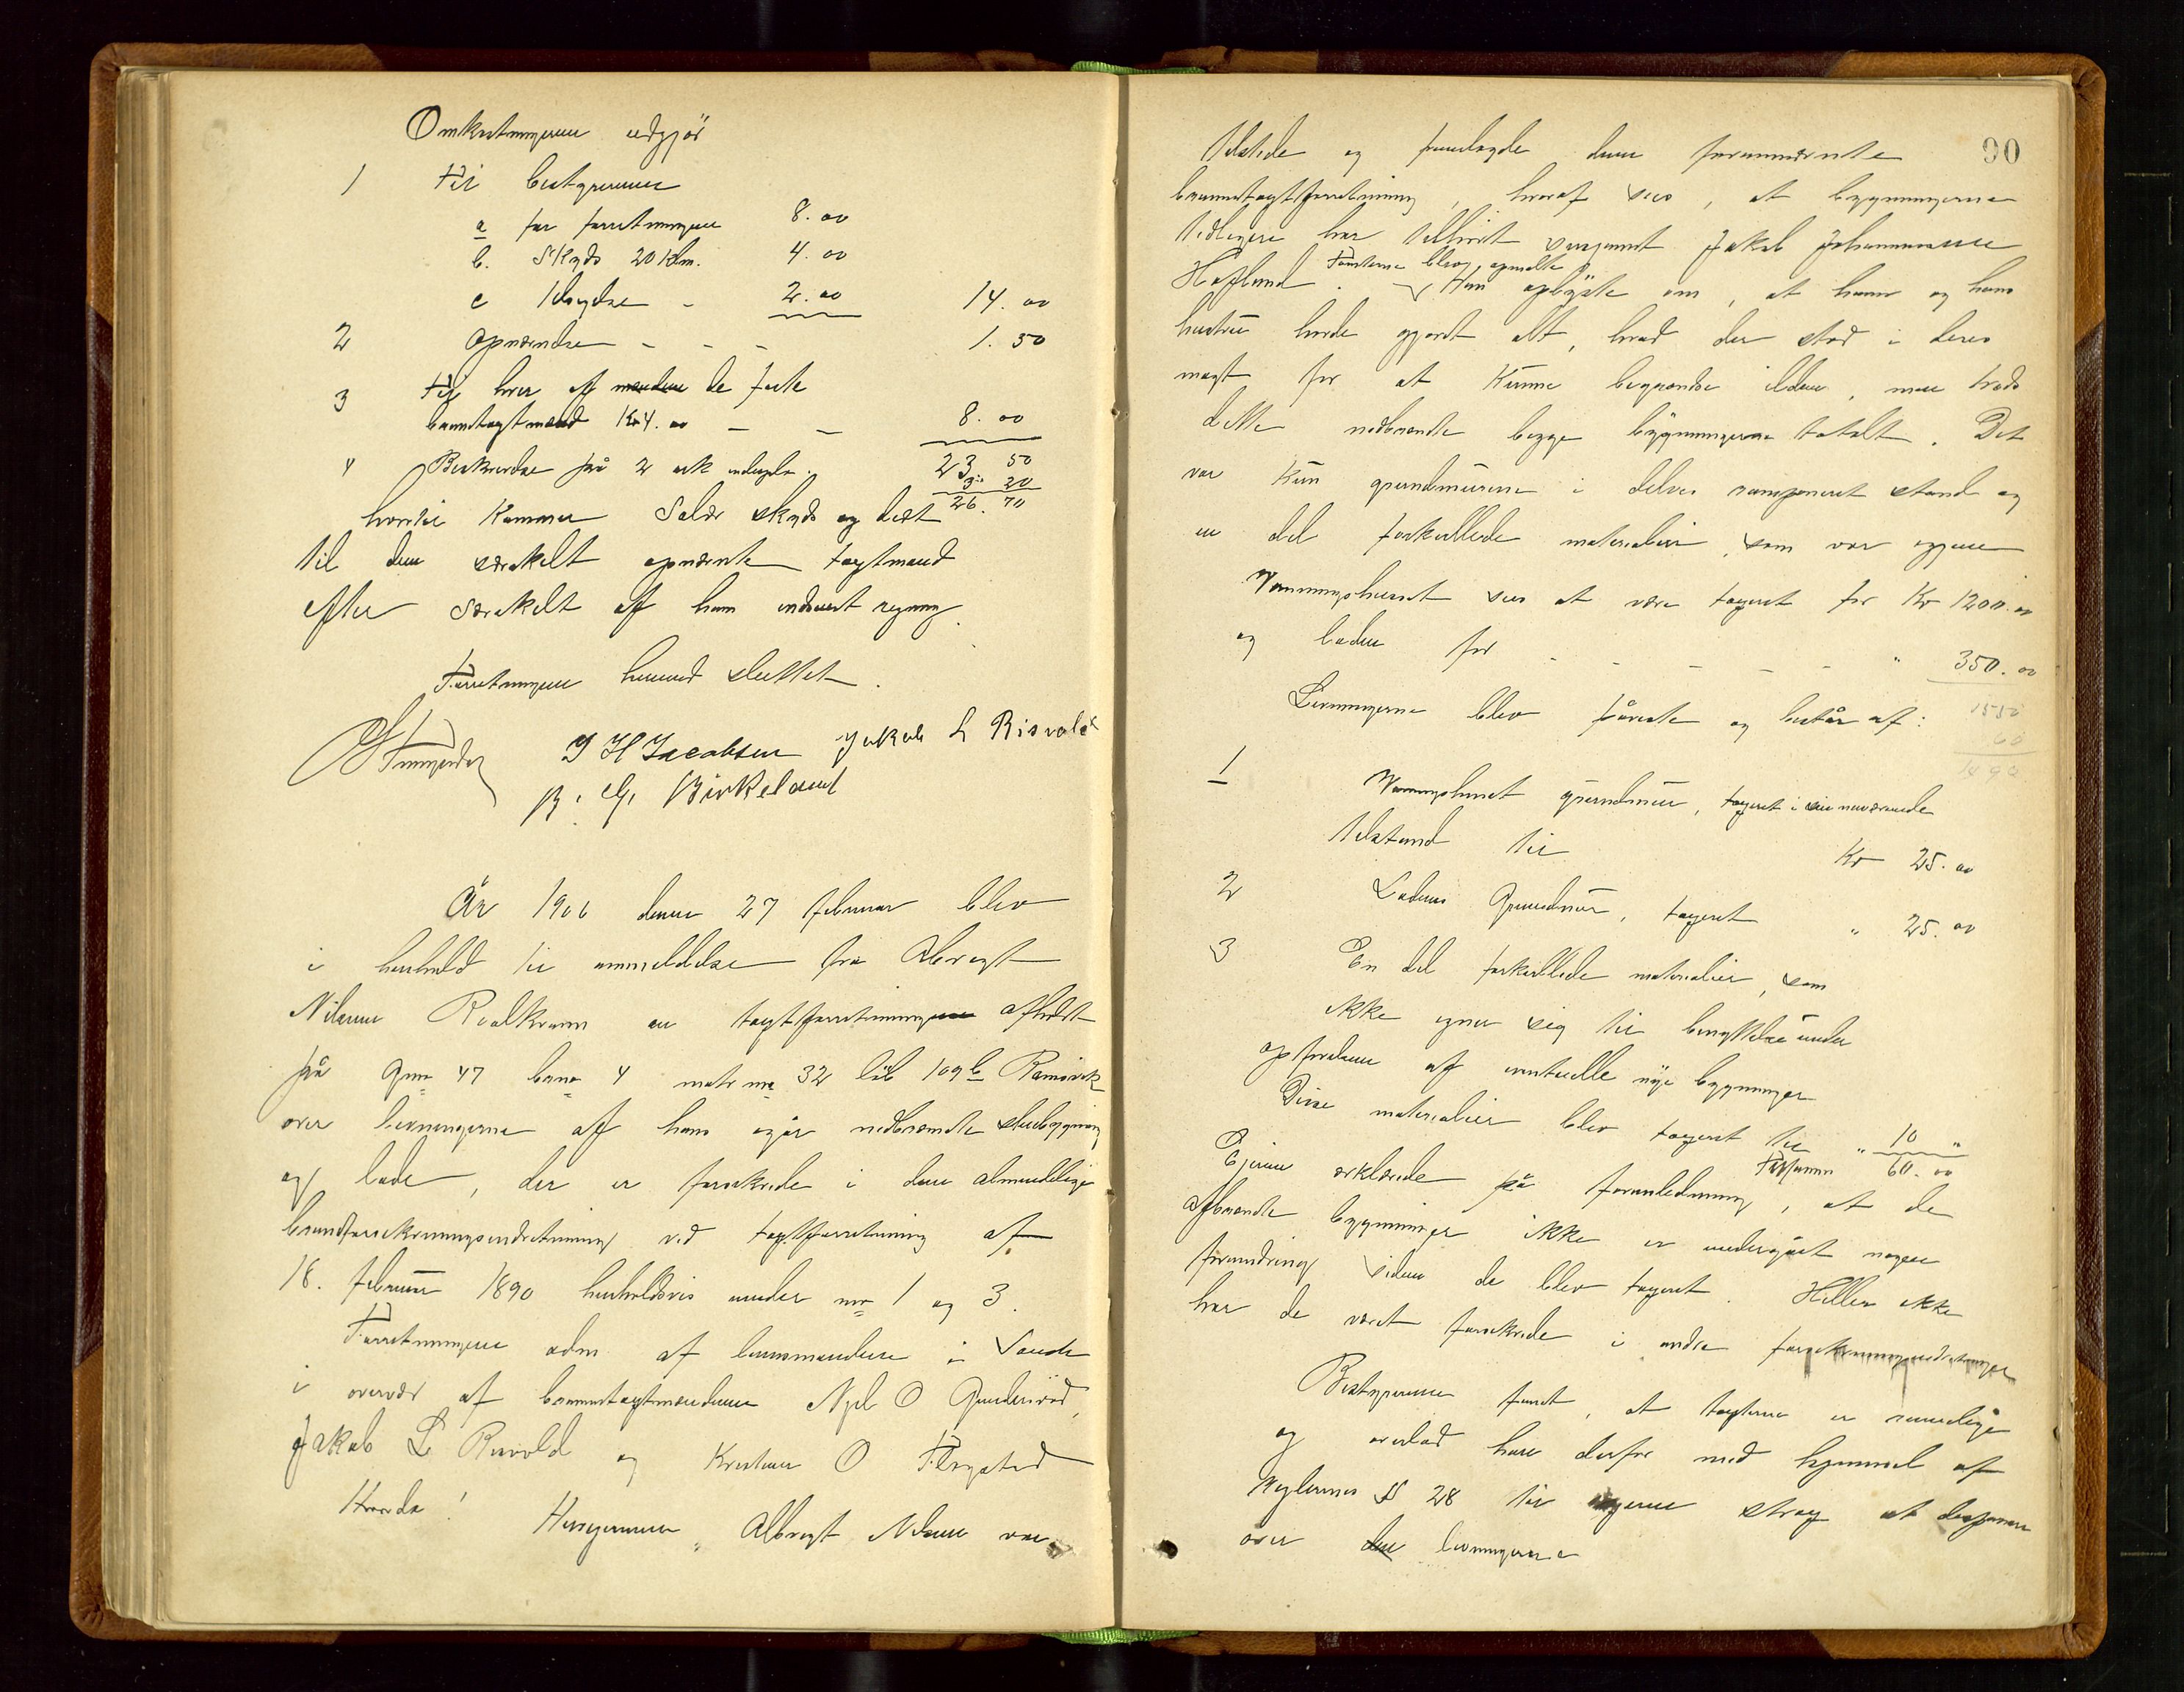 Omkostningerne udgjør
1 til bestyreren
a for forretningen 8.00
b. Skyds 20 Klm. 4.00
c Ildsydse - 2.00 14.00
2 opnævnelse - - - 1.50
3 til hver af mændene de faste
branntagtmænd Kr 4.00 - - 8.00
4 Beskrivelse på 2 ark 23.50
3.20
hvortil kommer Salær skyds og diæt 26.70
til den særskilt opnævnte taxtmand
efter særskilt af ham indsendt regning.
Forretningen hermed sluttet.
J H Jacobsen Jakob L Risvold
B. G. Birkeland
År 1906 den 27 februar blev
i henhold til anmeldelse fra Albregt
Nilsen Ralkvam en taxtforretningen afholdt
på Gno 47 bno 4 matr no 32 løb 109 b Ramsvik
over levningerne af hans igår nedbrændte stuebygning
og lade, der er forsikrede i den almindelige
brandforsikringsindretning ved taxtforretning af
18. februar 1890 henholdsvis under no 1 og 3.
Forretningen adm. af lensmanden i Sande
i overvær af branntagtmændene Njel O Gundersød,
Jakob L Risvold og Kristian O
Hvorda! Husejeren, Albregt Nilsen var
90
tilstede og fremlagde den forannævnte
branntagtforretning, hvoraf sees, at bygningerne
tidligere har tilhørt svogeret Jakob Johannessen
Hafland. Tomterne blev opmålte
Han oplyste om, at han og hans
hustru havde gjordt alt, hvad der stod i deres
magt for at kunne begrændse ilden, men trods
dette nedbrændte begge bygningerne totalt. Det
var kun grundmurene i delvis ramponeret stand og
en del forkullede materialier, som var igjen
Vaaningshuset sees at være taxeret for Kr 1200.00
og laden for - - - - - " 350.00
1550
60
1490
Levningerne blev påviste og består af:
1 Vaaningshuset grundmur, taxeret i sin nuværende
tilstand til Kr 25.00
2 Ladens Grundmur, taxeret " 25.00
3 En del forkullede materialier, som
ikke egner sig til benyttelse under
opførelsen af eventuelle nye bygninger
Disse materialier blev taxeret til " 10 "
Tilsammen 60.00
Ejeren erklærede på foranledning, at de
afbrændte bygninger ikke er undergået nogen
forandring siden de blev taxeret. Heller ikke
har de været forsikrede i andre forsikringsindretninger
Bestyreren fandt, at taxterne er rimelige
og overlod ham derfor med hjemmel af
Reglernes § 28 til ejeren strax at disponere
over den levningerne